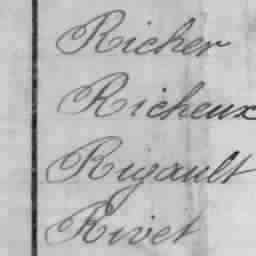 Richer
Richeux
Rigault
Rivet